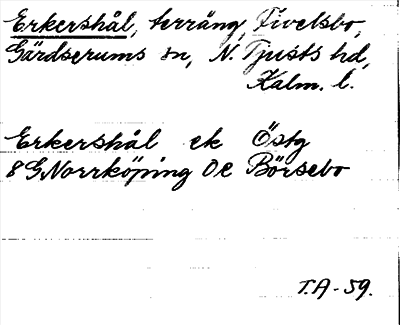 Erkershål, terräng, Fivelsbo,
Gärdserums sn, N. Tjusts hd,
Kalm. l.
Erkershål ek Östg
8G Norrköping 0e Börsebo
T.A-59.